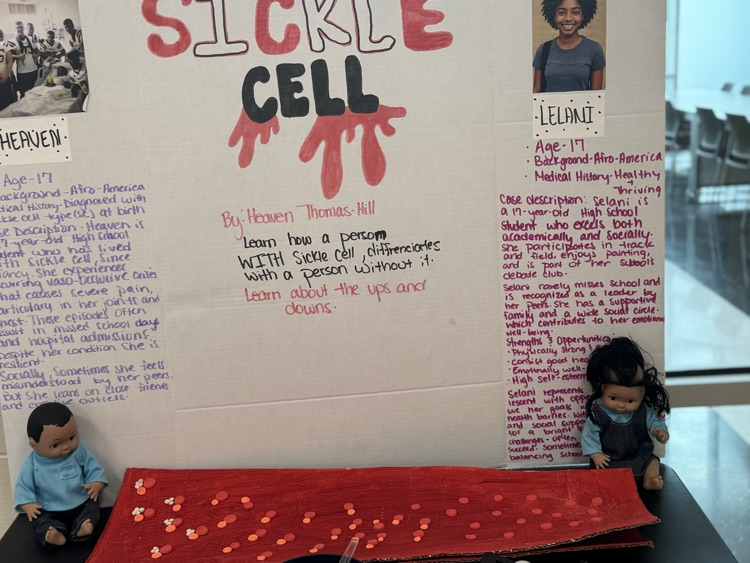 SICKLE
CELL
HEAVEN
Age-17
ackground-Afro-America
dical History: Diagnosed with
kle cell type(sc) at birth
se Description: Heaven is
17-year-old High school
dent who has lived
ith Sickle cell, since
ancy. She experiences
curring vaso-occlusive crises
that causes severe pain,
particulary in her joints and
hest. These episodes often
esult in missed school days
and hospital admissions.
espite her condition She is
resilient.
Socially, sometimes she feels
misunderstood by her peers.
but she leans on close friends
and outlets.
By: Heaven Thomas-Hill
Learn how a person
WITH Sickle cell, diffrenciates
with a person without it.
Learn about the ups and
downs.
LELANI
· Age-17
· Background-Afro-America
· Medical History-Healthy
+ Thriving
Case description: Selani is
a 17-year-old High School
student who excels both
academically and socially.
she participates in track
and field, enjoys painting,
and is part of her school's
debate club.
Selani rarely misses school and
is recognized as a leader by
her peers. She has a supportive
family and a wide social circle.
which contributes to her emotiona
well-being.
Strengths & Opportunities:
· Physically strong &
· consist good hea
· Emotionally well-
· High self-esteem
Selani represents
lescent with opp
sue her goals w
health barriers. Wit
and social suppo
for a bright f
challenges-often
succeed. Sometimes
balancing school